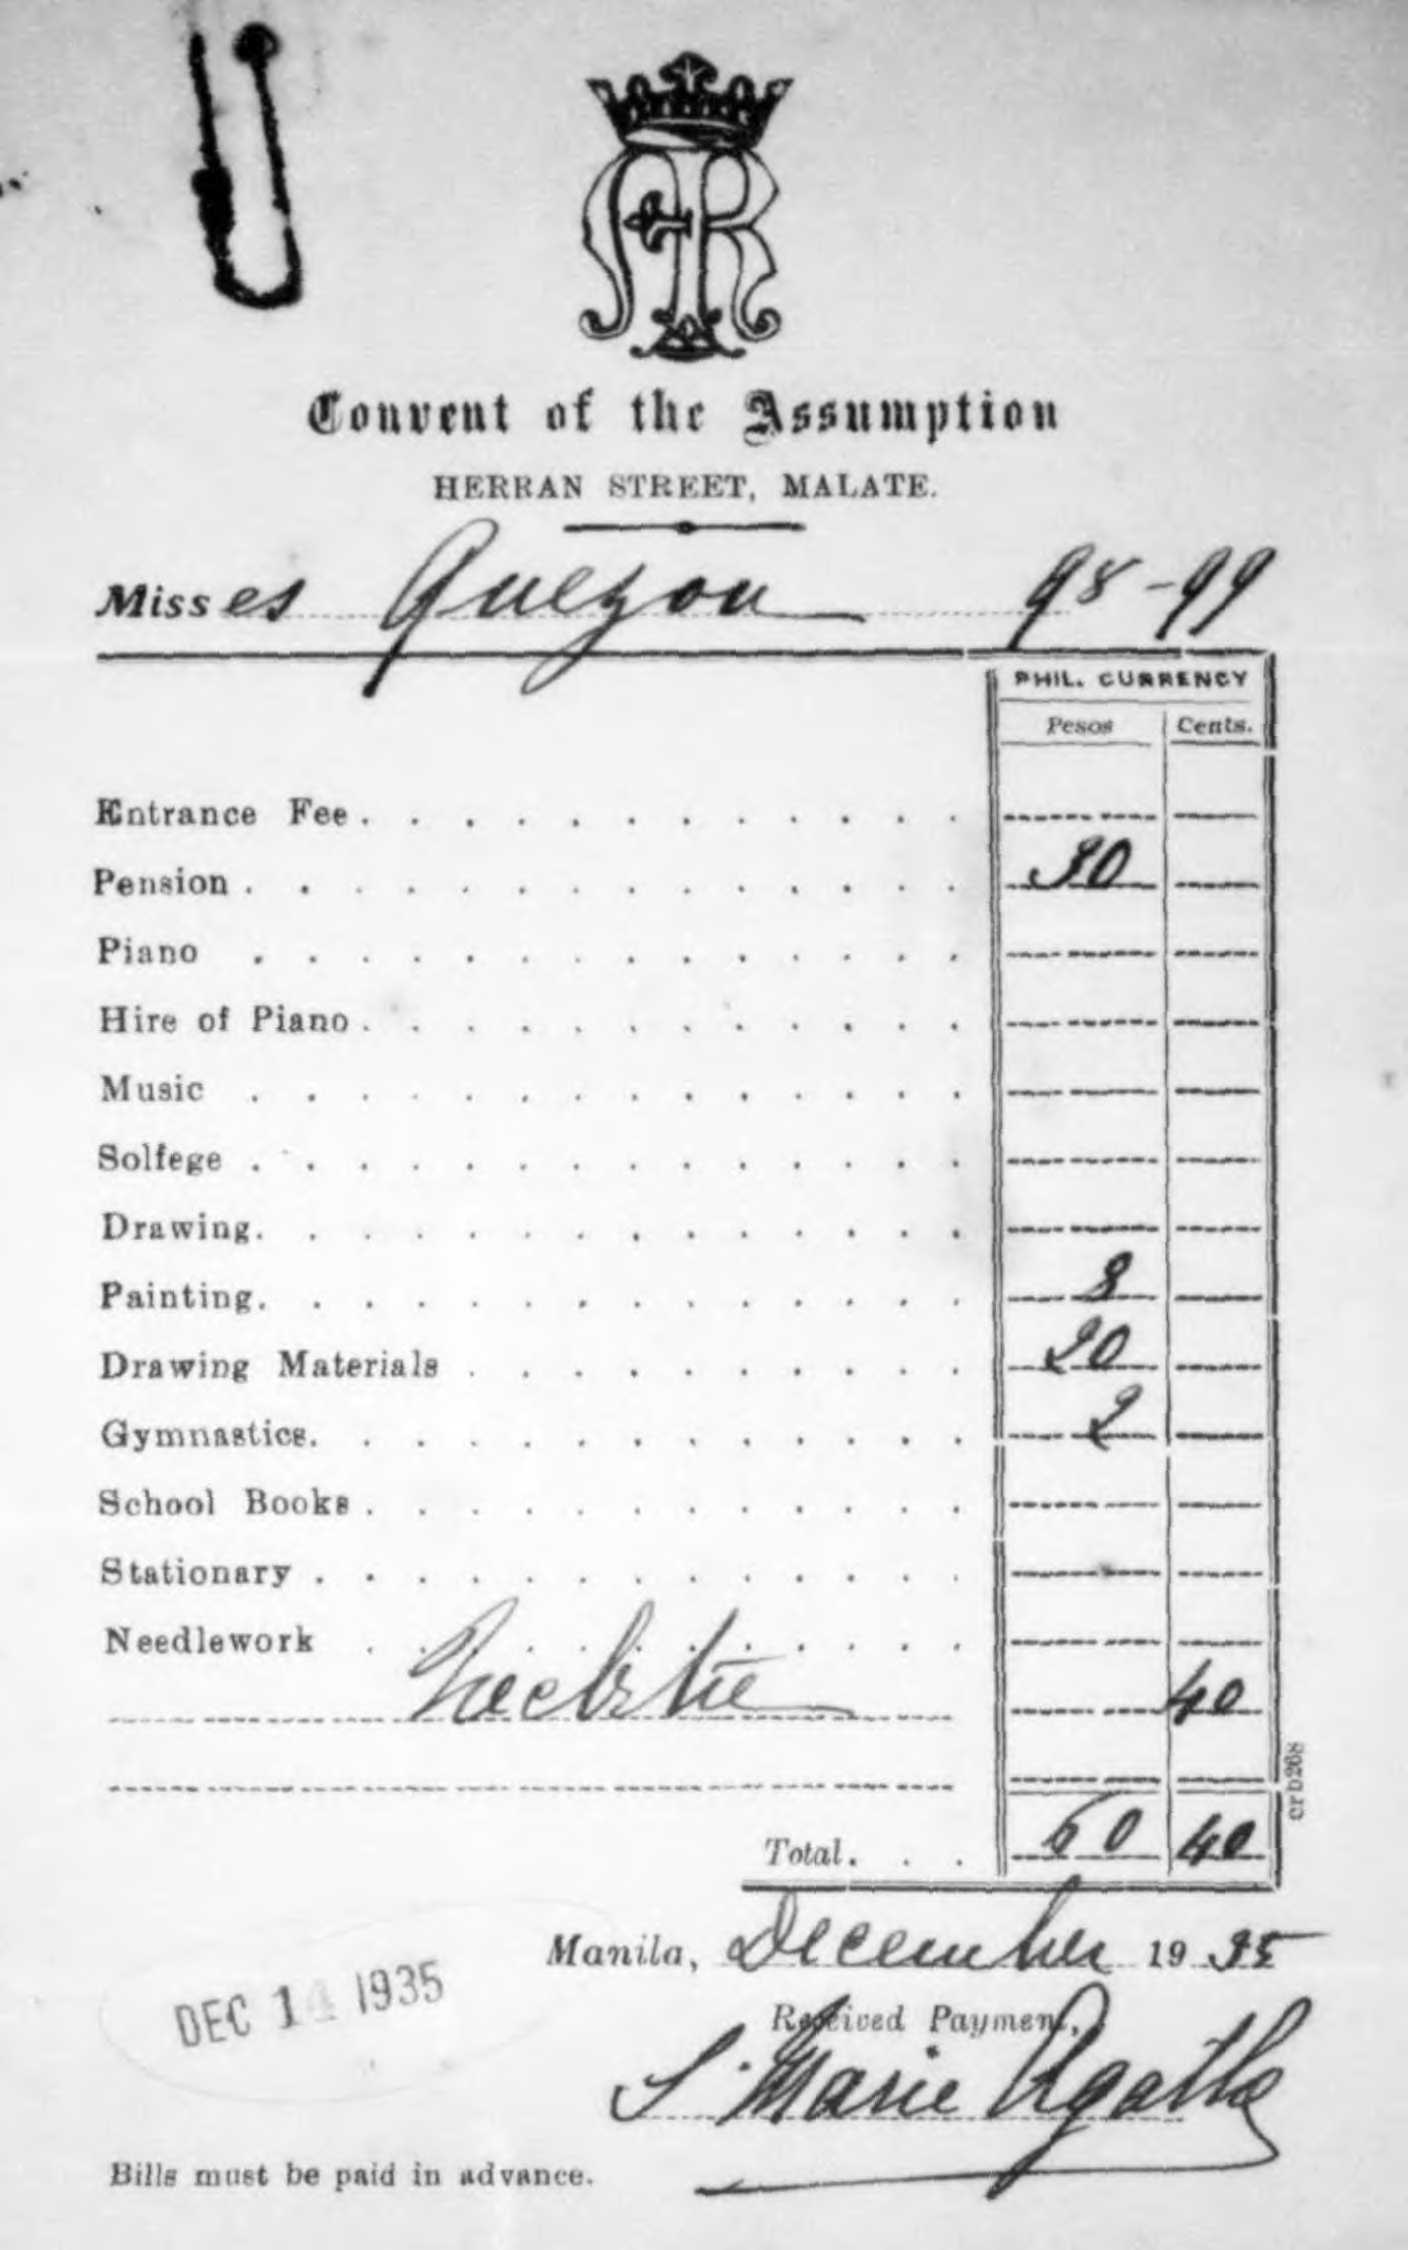 Convent of the Assumption
HERRAN STREET, MALATE.
Misses Quezon 98-99
PHIL. CURRENCY
Pesos Cents.
Entrance Fee
Pension 30
Piano
Hire of Piano
Music
Solfege
Drawing
Painting 8
Drawing Materials 20
Gymnastics 2
School Books
Stationary
Needlework
Neck tie 40
crb268
Total 60 40
Manila, December 1935
DEC 14 1935
Received Payment,
S. Marie Agatha
Bills must be paid in advance.